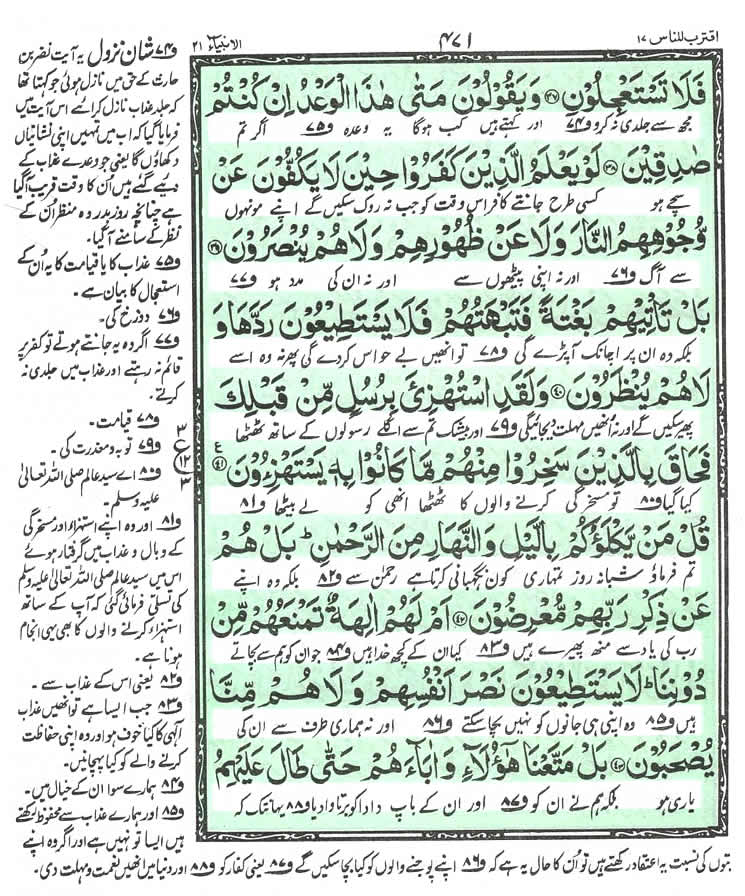 اقترب للناس ١٧
٤٧١
الانبیاء ٢١
فَلَا تَسْتَعْجِلُوْنِ ﴿۳۷﴾ وَیَقُوْلُوْنَ مَتٰی هٰذَا الْوَعْدُ اِنْ كُنْتُمْ
مجھ سے جلدی نہ کرو و۷۴ اور کہتے ہیں کب ہوگا یہ وعدہ و۷۵ اگر تم
صٰدِقِیْنَ ﴿۳۸﴾ لَوْ یَعْلَمُ الَّذِیْنَ كَفَرُوْا حِیْنَ لَا یَكُفُّوْنَ عَنْ
سچے ہو کسی طرح جانتے کافر اس وقت کو جب نہ روک سکیں گے اپنے مونہوں
وُّجُوْهِهِمُ النَّارَ وَلَا عَنْ ظُهُوْرِهِمْ وَلَا هُمْ یُنْصَرُوْنَ ﴿۳۹﴾
سے آگ و۷۶ اور نہ اپنی پیٹھوں سے اور نہ ان کی مدد ہو و۷۷
بَلْ تَاْتِیْهِمْ بَغْتَةً فَتَبْهَتُهُمْ فَلَا یَسْتَطِیْعُوْنَ رَدَّهَا وَ
بلکہ وہ ان پر اچانک آپڑے گی و۷۸ تو انھیں بے حواس کردے گی پھر نہ وہ اسے
لَا هُمْ یُنْظَرُوْنَ ﴿۴۰﴾ وَلَقَدِ اسْتُهْزِئَ بِرُسُلٍ مِّنْ قَبْلِكَ
پھیر سکیں گے اور نہ انھیں مہلت دیجائیگی و۷۹ اور بیشک تم سے اگلے رسولوں کے ساتھ ٹھٹھا
فَحَاقَ بِالَّذِیْنَ سَخِرُوْا مِنْهُمْ مَّا كَانُوْا بِهٖ یَسْتَهْزِءُوْنَ ﴿۴۱﴾
کیا گیا و۸۰ تو مسخرگی کرنے والوں کا ٹھٹھا انھی کو لے بیٹھا و۸۱
قُلْ مَنْ یَّكْلَؤُكُمْ بِالَّیْلِ وَالنَّهَارِ مِنَ الرَّحْمٰنِ ؕ بَلْ هُمْ
تم فرماؤ شبانہ روز تمہاری کون نگہبانی کرتا ہے رحمٰن سے و۸۲ بلکہ وہ اپنے
عَنْ ذِكْرِ رَبِّهِمْ مُّعْرِضُوْنَ ﴿۴۲﴾ اَمْ لَهُمْ اٰلِهَةٌ تَمْنَعُهُمْ مِّنْ
رب کی یاد سے منھ پھیرے ہیں و۸۳ کیا ان کے کچھ خدا ہیں و۸۴ جو ان کو ہم سے بچاتے
دُوْنِنَا ؕ لَا یَسْتَطِیْعُوْنَ نَصْرَ اَنْفُسِهِمْ وَلَا هُمْ مِّنَّا
ہیں و۸۵ وہ اپنی ہی جانوں کو نہیں بچا سکتے و۸۶ اور نہ ہماری طرف سے ان کی
یُصْحَبُوْنَ ﴿۴۳﴾ بَلْ مَتَّعْنَا هٰۤؤُلَآءِ وَ اٰبَآءَهُمْ حَتّٰی طَالَ عَلَیْهِمُ
یاری ہو بلکہ ہم نے ان کو و۸۷ اور ان کے باپ دادا کو برتاوا دیا و۸۸ یہاں تک کہ
و۷۴ شان نزول یہ آیت نضر بن
حارث کے حق میں نازل ہوئی جو کہتا تھا
کہ جلد عذاب نازل کرائیے اس آیت میں
فرمایا گیا کہ اب میں تمہیں اپنی نشانیاں
دکھاؤں گا یعنی جو وعدے عذاب کے
دیئے گئے ہیں ان کا وقت قریب آگیا
ہے چنانچہ روز بدر وہ منظر ان کے
نظر کے سامنے آگیا۔
و۷۵ عذاب کا یا قیامت کا یہ ان کے
استعجال کا بیان ہے۔
و۷۶ دوزخ کی۔
و۷۷ اگر وہ یہ جانتے ہوتے تو کفر پر
قائم نہ رہتے اور عذاب میں جلدی نہ
کرتے۔
و۷۸ قیامت۔
و۷۹ توبہ و معذرت کی۔
و۸۰ اے سید عالم صلی اللہ تعالیٰ
علیہ وسلم۔
و۸۱ اور وہ اپنے استہزاء اور مسخرگی
کے وبال و عذاب میں گرفتار ہوئے
اس میں سید عالم صلی اللہ تعالیٰ علیہ وسلم
کی تسلی فرمائی گئی کہ آپ کے ساتھ
استہزاء کرنے والوں کا بھی یہی انجام
ہونا ہے۔
و۸۲ یعنی اس کے عذاب سے۔
و۸۳ جب ایسا ہے تو انھیں عذاب
الٰہی کا کیا خوف ہو اور وہ اپنی حفاظت
کرنے والے کو کیا پہچانیں۔
و۸۴ ہمارے سوا ان کے خیال میں۔
و۸۵ اور ہمارے عذاب سے محفوظ رکھتے
ہیں ایسا تو نہیں ہے اور اگر وہ اپنے
بتوں کی نسبت یہ اعتقاد رکھتے ہیں تو ان کا حال یہ ہے کہ و۸۶ اپنے پوجنے والوں کو کیا بچا سکیں گے و۸۷ یعنی کفار کو و۸۸ اور دنیا میں انھیں نعمت و مہلت دی۔
٣
ع
١٢
٣